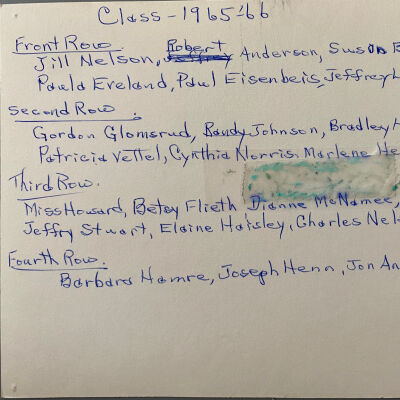 Class - 1965-'66
Front Row
Jill Nelson, Robert Anderson, Susan
Paula Eveland, Paul Eisenbeis, Jeffrey
Second Row.
Gordon Glomsrud, Randy Johnson, Bradley
Patricia Vettel, Cynthia Norris, Marlene
Third Row.
Miss Howard, Betsy Flieth, Dianne McNamee,
Jeffry Stuart, Elaine Haisley, Charles
Fourth Row.
Barbara Hamre, Joseph Henn, Jon